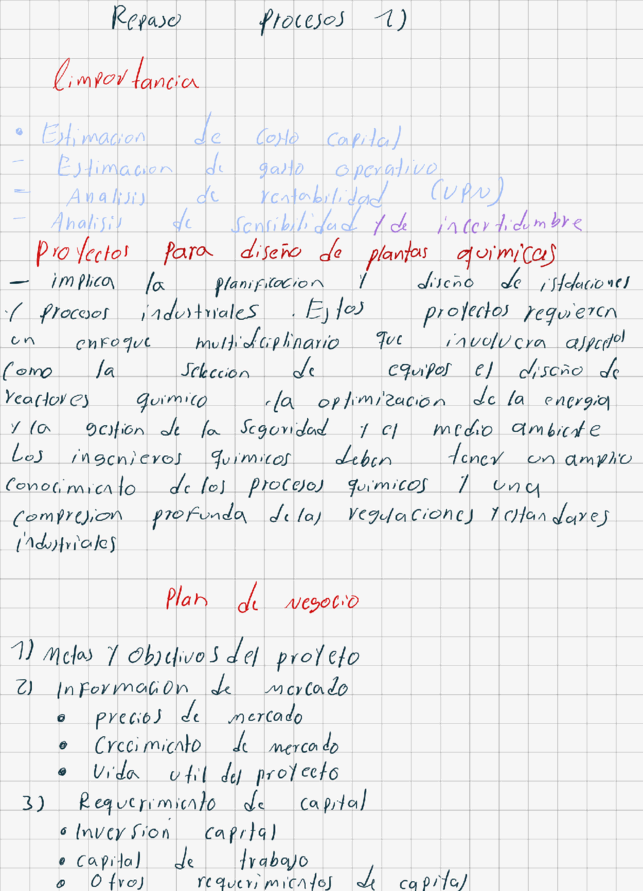 Repaso procesos 1)
limportancia
• Estimacion de costo capital
- Estimacion de gasto operativo
- Analisis de rentabilidad (VPN)
- Analisis de sensibilidad y de incertidumbre
Proyectos para diseño de plantas quimicas
- implica la planificacion y diseño de istalaciones
y procesos industriales. Estos proyectos requieren
un enfoque multidiciplinario que involucra aspectos
como la seleccion de equipos el diseño de
reactores quimico, la optimizacion de la energia
y la gestion de la seguridad y el medio ambiente
Los ingenieros quimicos deben tener un amplio
conocimiento de los procesos quimicos y una
compresion profunda de las regulaciones y estandares
industriales
Plan de negocio
1) Metas y Objetivos del proyeto
2) Informacion de mercado
• precios de mercado
• Crecimiento de mercado
• Vida util del proyecto
3) Requerimiento de capital
• Inversion capital
• capital de trabajo
• Otros requerimientos de capital